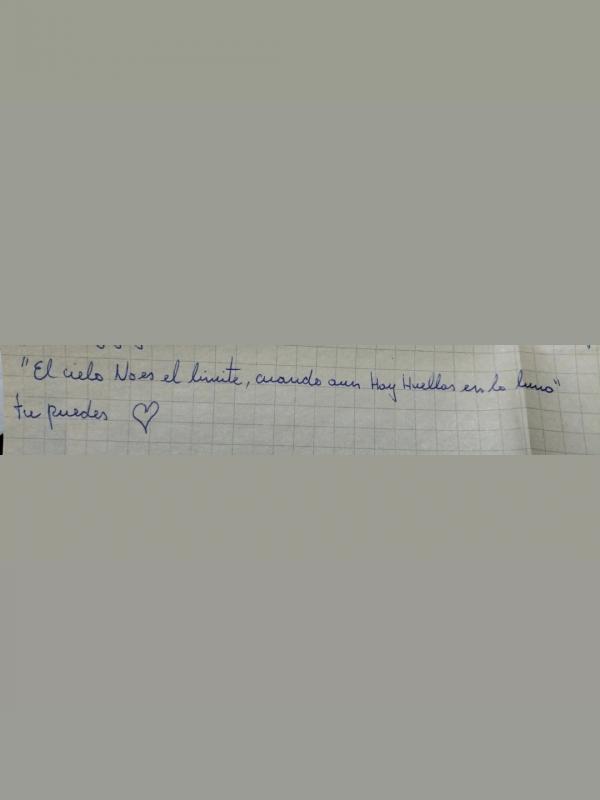 "El cielo No es el limite, cuando aun Hay Huellas en la luna"
tu puedes